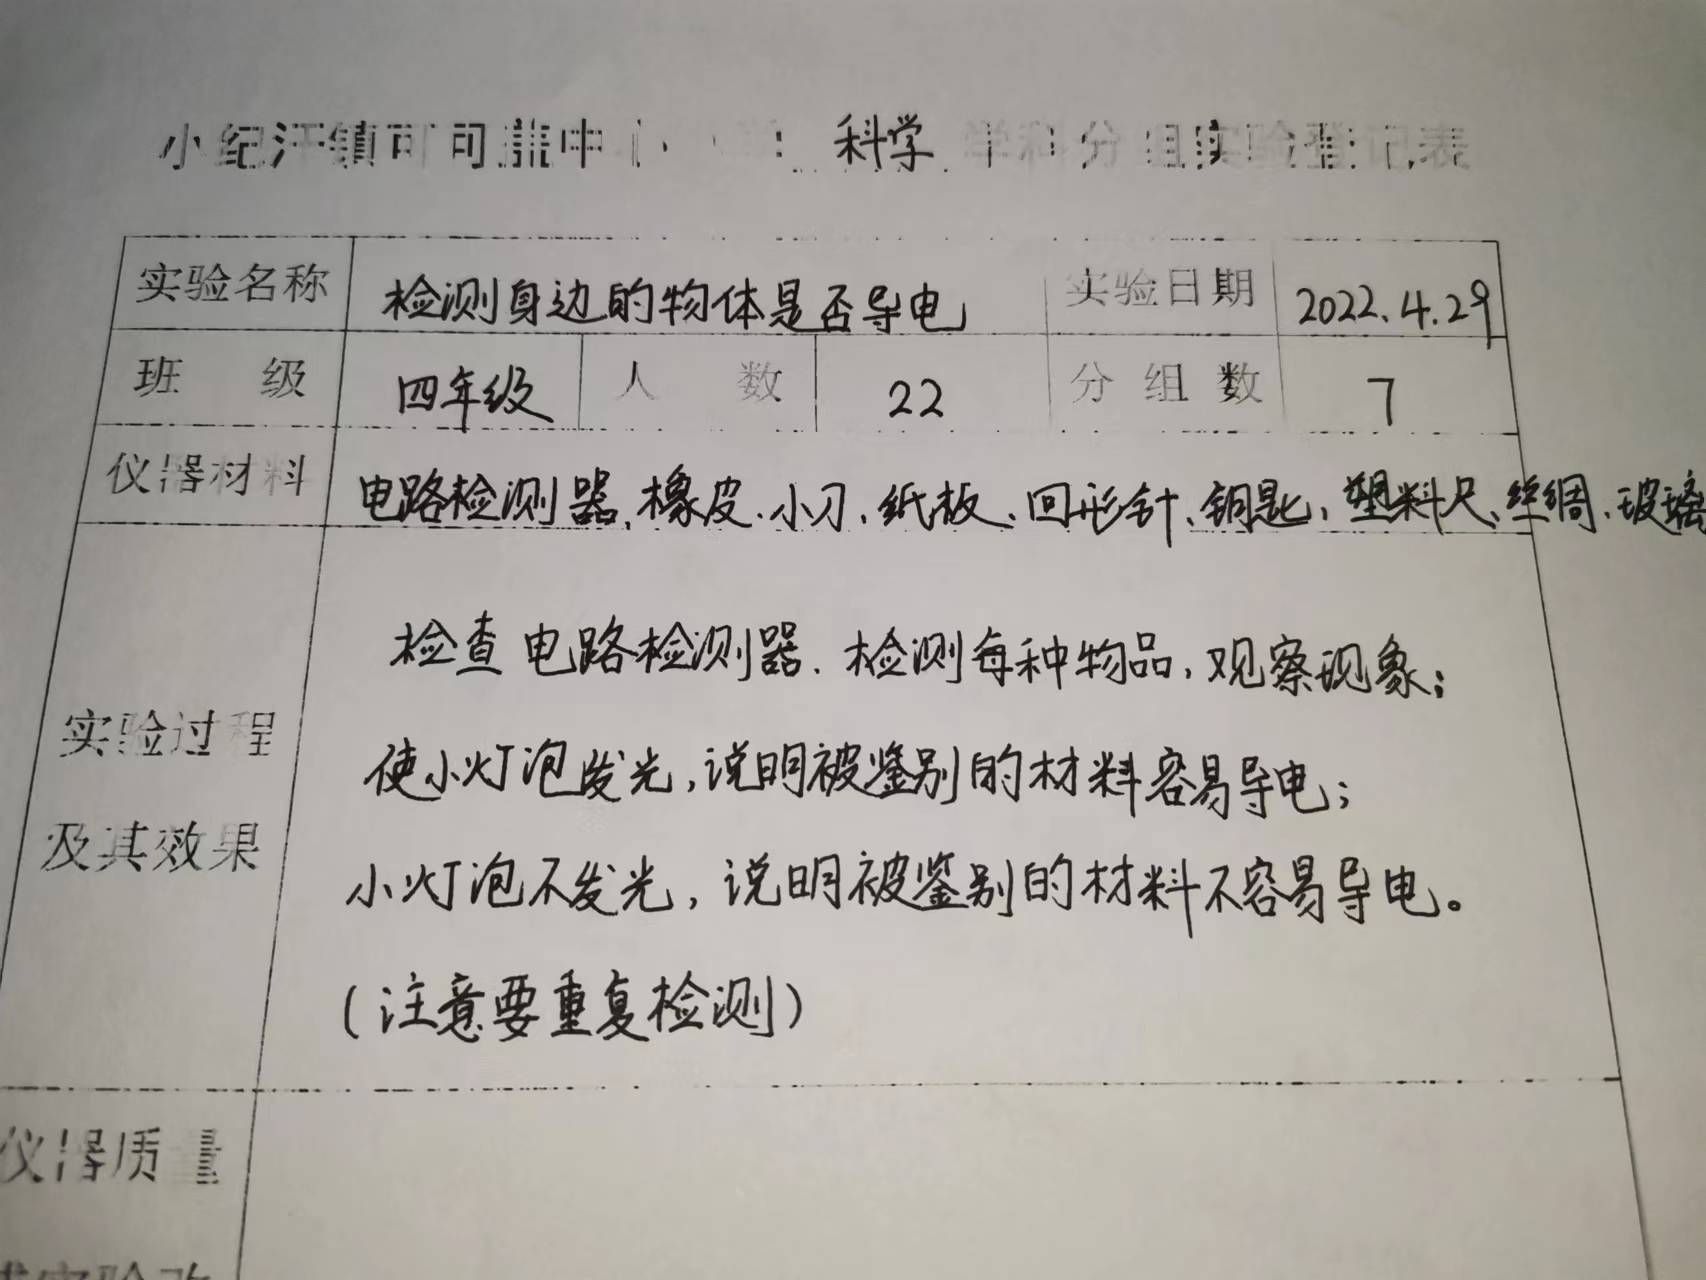 小纪汗镇可可盖中心 科学 学科分组实验登记表
实验名称 检测身边的物体是否导电 实验日期 2022.4.29
班 级 四年级 人 数 22 分组数 7
仪器材料 电路检测器、橡皮、小刀、纸板、回形针、钥匙、塑料尺、丝绸、玻璃
检查电路检测器.检测每种物品,观察现象;
实验过程
使小灯泡发光,说明被鉴别的材料容易导电;
及其效果
小灯泡不发光,说明被鉴别的材料不容易导电。
(注意要重复检测)
仪器质量
实验改